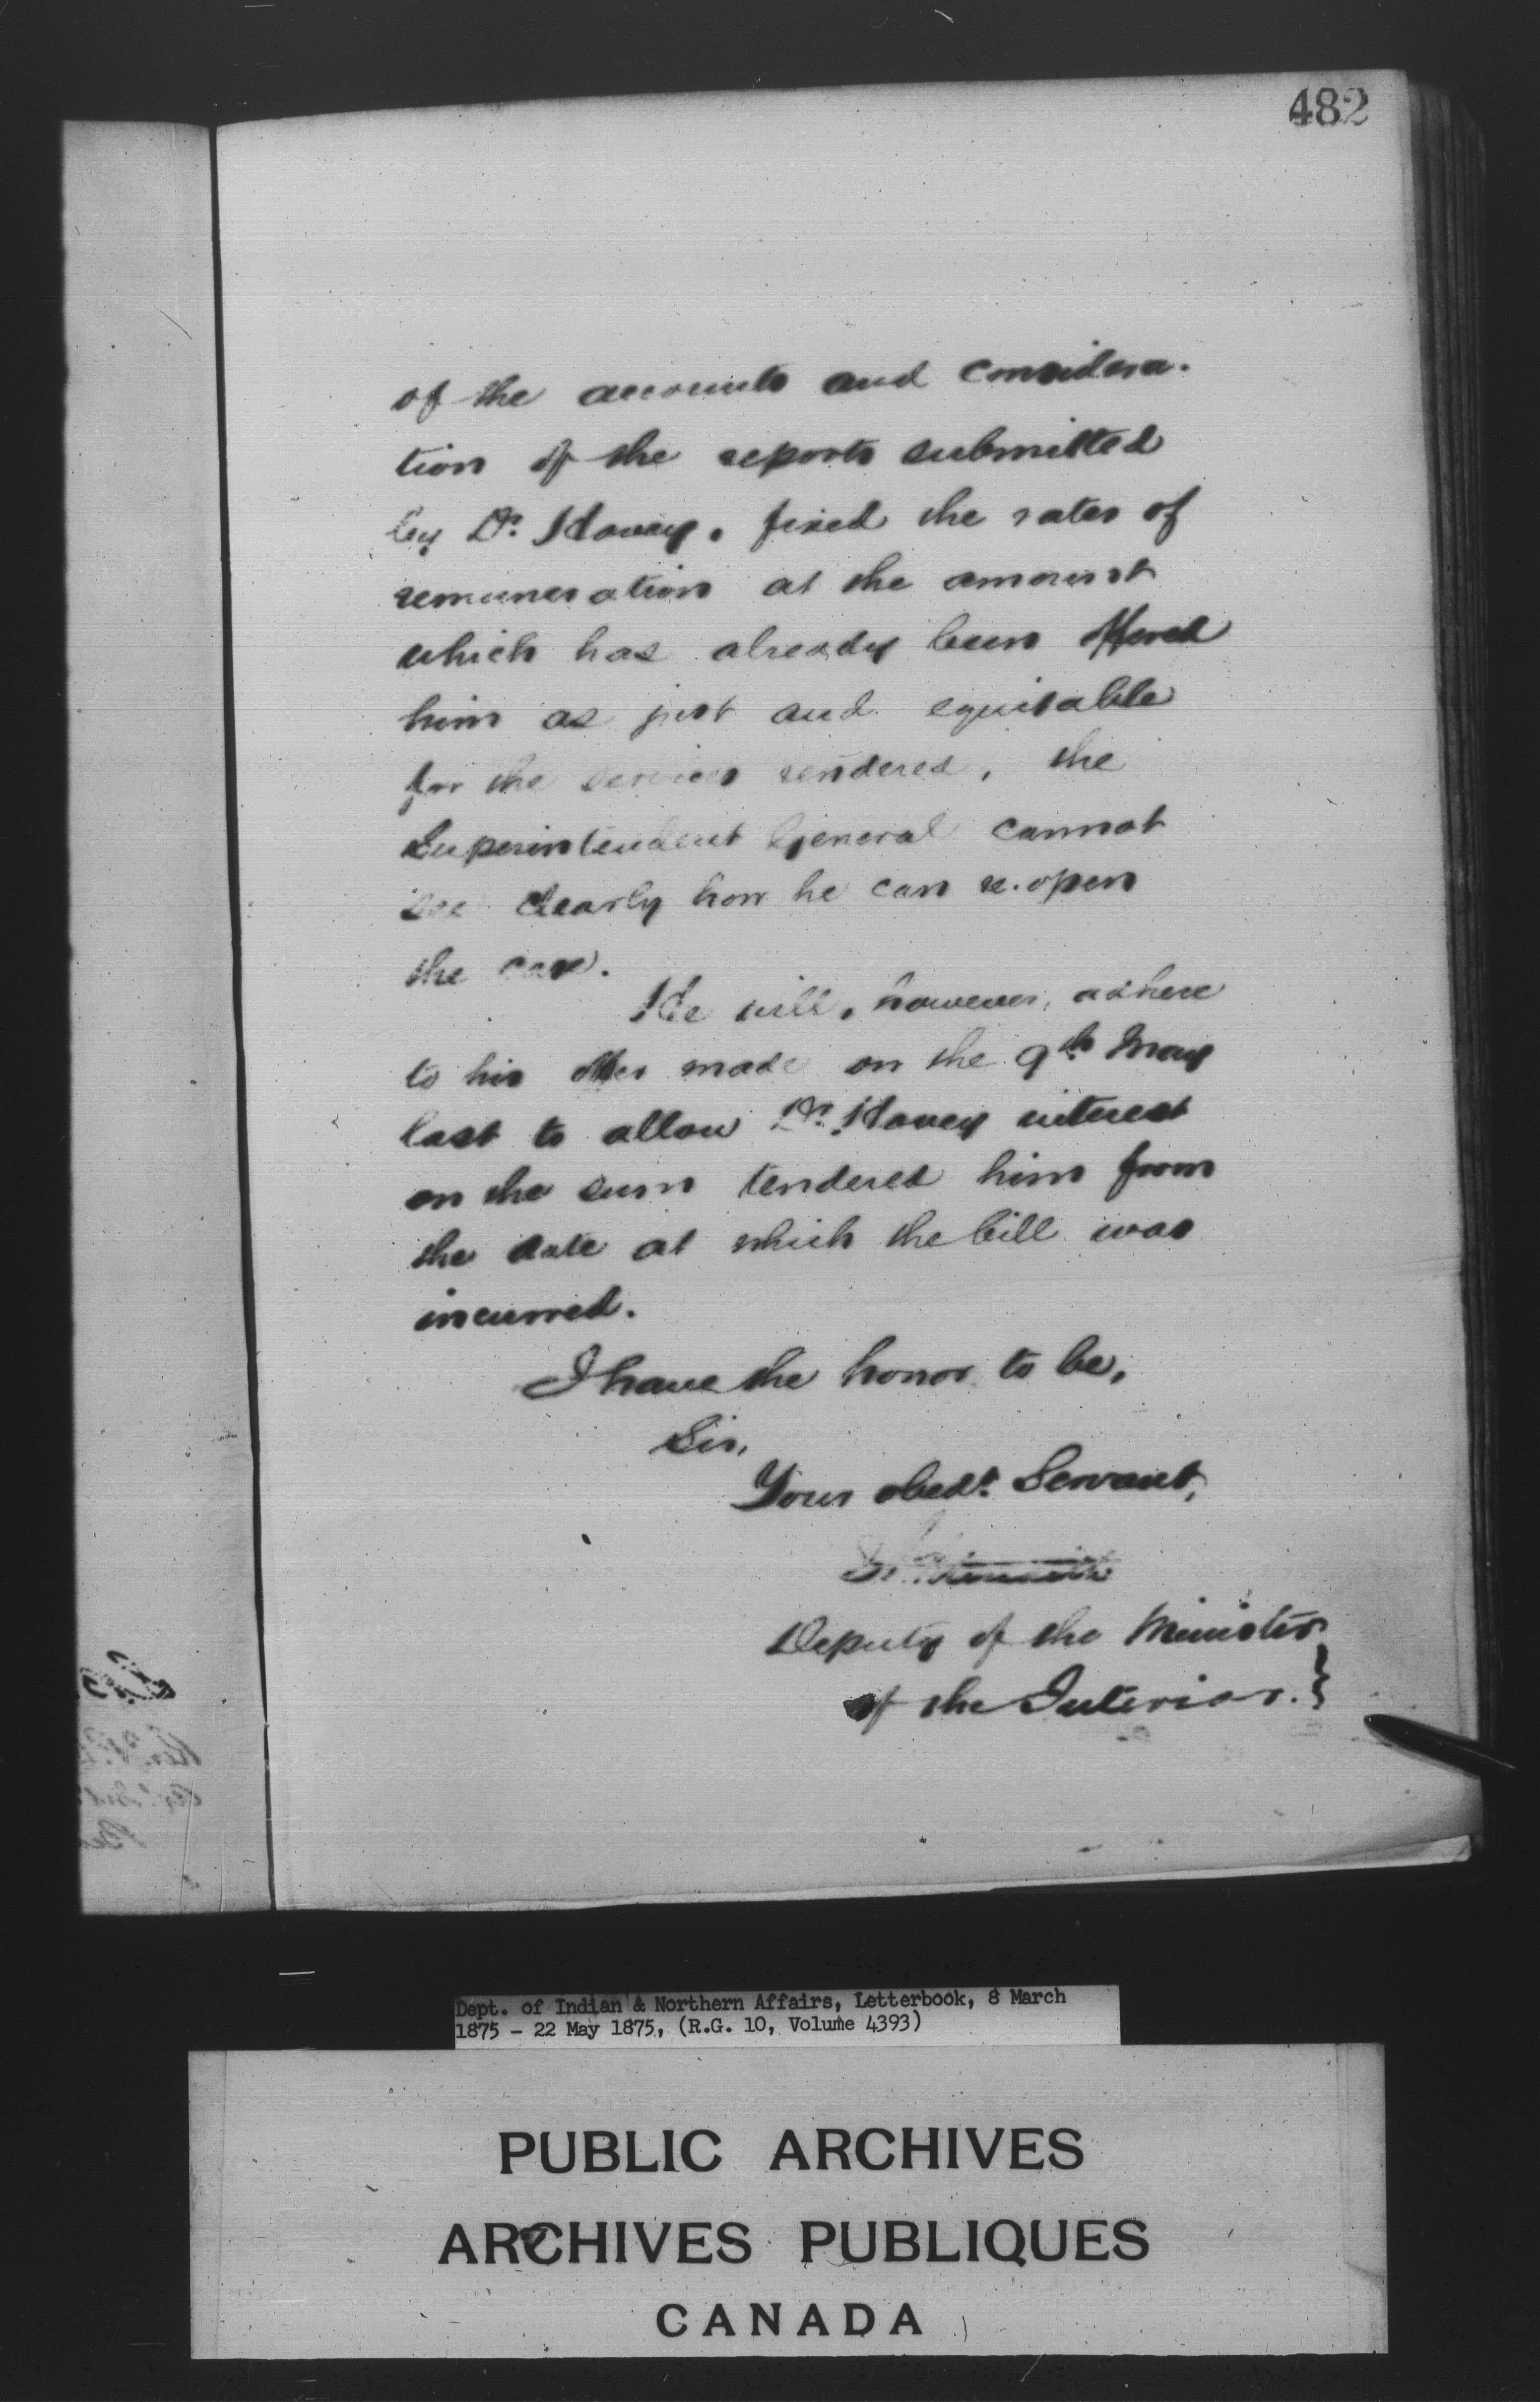 482
of the accounts and considera-
tion of the reports submitted
by Dr. Hovey, fixed the rates of
remuneration at the amount
which has already been offered
him as just and equitable
for the services rendered, the
Superintendent General cannot
see clearly how he can re-open
the case.
He will, however, adhere
to his offer made on the 9th May
last to allow Dr. Hovey interest
on the sum tendered him from
the date at which the bill was
incurred.
I have the honor to be,
Sir,
Your obedt. Servant,
Deputy of the Minister
of the Interior. }
Dept. of Indian & Northern Affairs, Letterbook, 8 March
1875 - 22 May 1875, (R.G. 10, Volume 4393)
PUBLIC ARCHIVES
ARCHIVES PUBLIQUES
CANADA